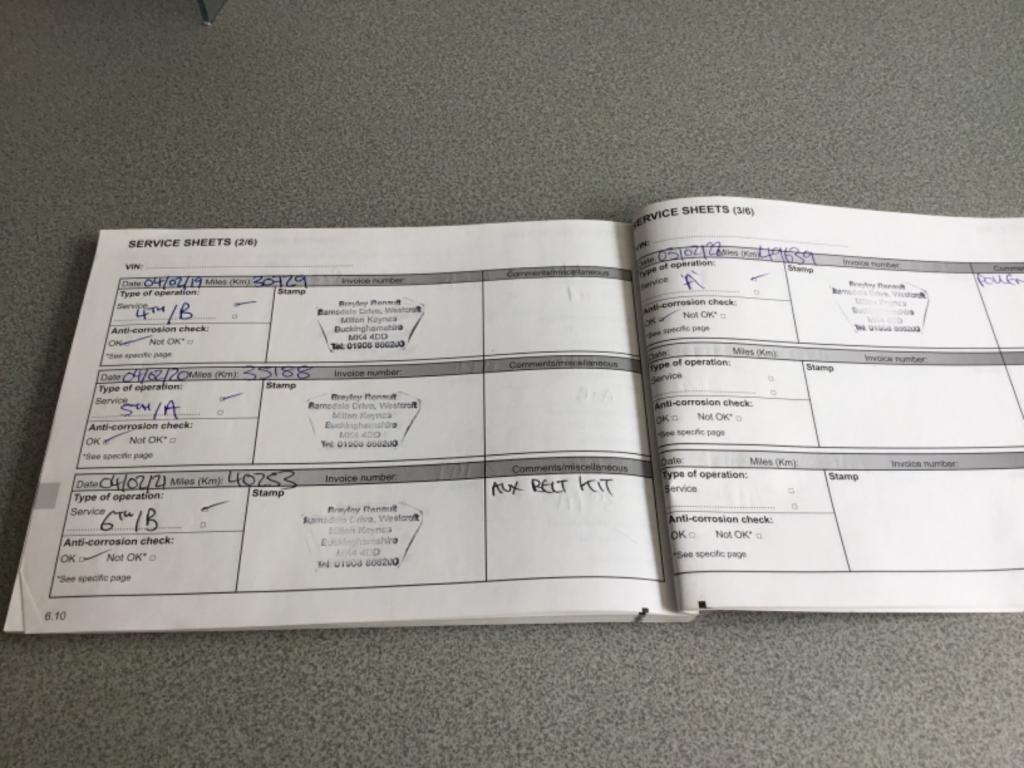 SERVICE SHEETS (2/6)
VIN:
Date: 04/02/19 Miles (Km): 30429 Invoice number: Comments/miscellaneous
Type of operation: Stamp
Service
4TH/B
Anti-corrosion check:
OK Not OK*
*See specific page
Brayley Renault
Ramsdale Drive, Westcroft
Milton Keynes
Buckinghamshire
MK4 4DD
Tel: 01908 666200
Date: 04/02/20 Miles (Km): 35188 Invoice number: Comments/miscellaneous
Type of operation: Stamp
Service
5TH/A
Anti-corrosion check:
OK Not OK*
*See specific page
Brayley Renault
Ramsdale Drive, Westcroft
Milton Keynes
Buckinghamshire
MK4 4DD
Tel: 01908 666200
Date: 04/02/21 Miles (Km): 40253 Invoice number: Comments/miscellaneous
Type of operation: Stamp
Service
6TH/B
Anti-corrosion check:
OK Not OK*
*See specific page
Brayley Renault
Ramsdale Drive, Westcroft
Milton Keynes
Buckinghamshire
MK4 4DD
Tel: 01908 666200
AUX BELT KIT
6.10
SERVICE SHEETS (3/6)
VIN:
Date: 03/02/22 Miles (Km): Invoice number:
Type of operation: Stamp
Service
A
Anti-corrosion check:
OK Not OK*
*See specific page
Brayley Renault
Ramsdale Drive, Westcroft
Milton Keynes
Buckinghamshire
MK4 4DD
Tel: 01908 666200
Date: Miles (Km): Invoice number:
Type of operation: Stamp
Service
Anti-corrosion check:
OK Not OK*
*See specific page
Date: Miles (Km): Invoice number:
Type of operation: Stamp
Service
Anti-corrosion check:
OK Not OK*
*See specific page